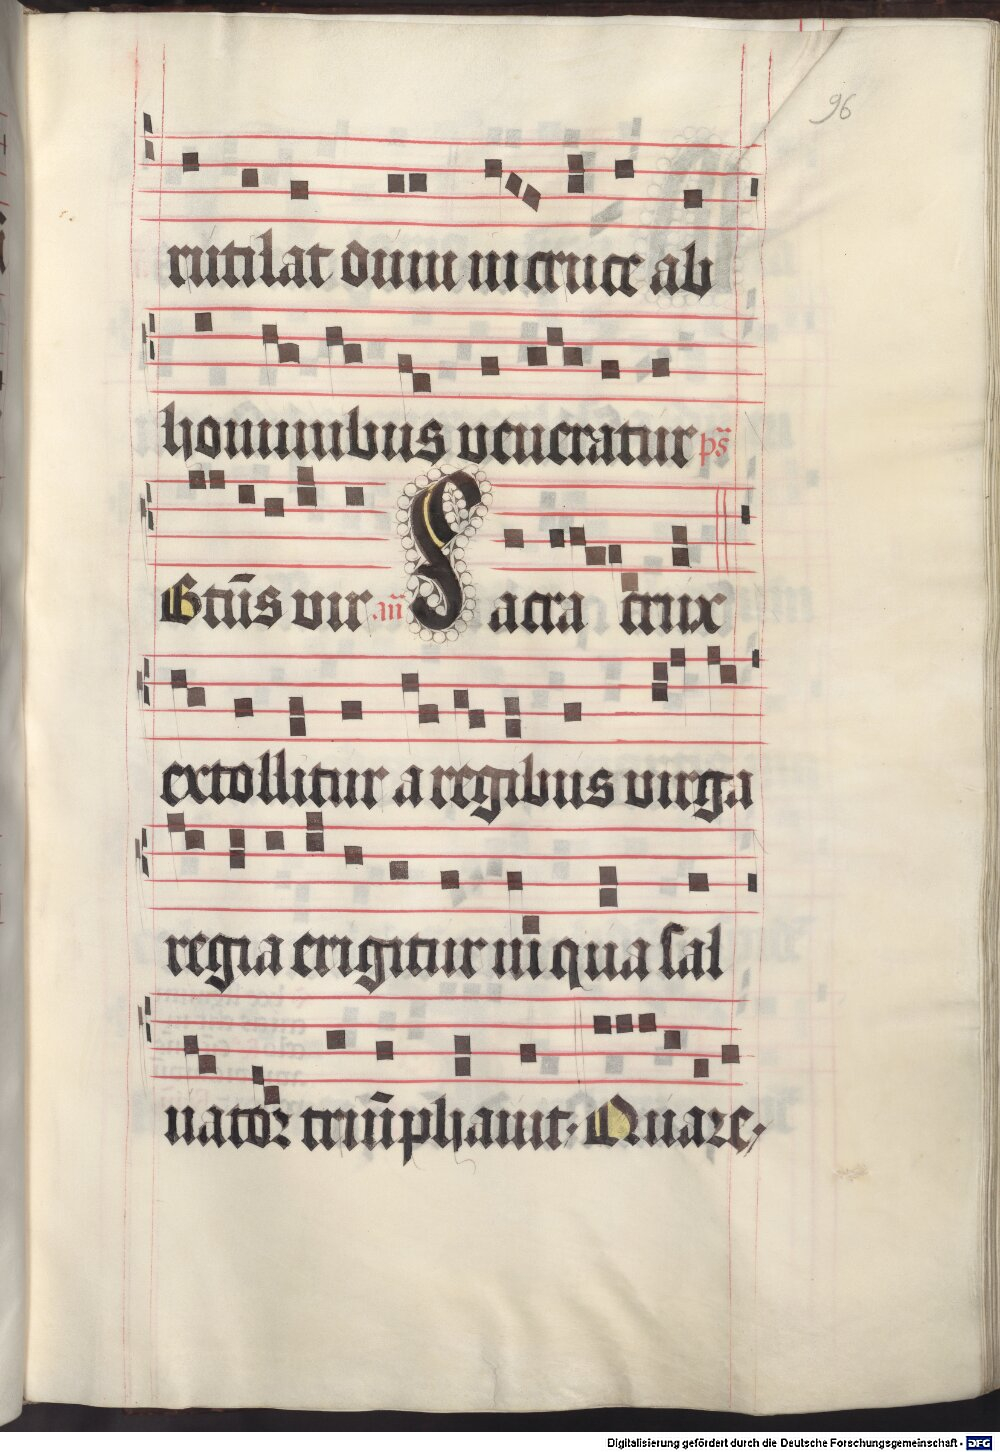 96
rutilat dum in cruce ab
hominibus veneratur ps̄
Btūs vir an̄ Sacra crux
extollitur a regibus virga
regia erigitur in qua sal
uator triūphauit. Quare.
Digitalisierung gefördert durch die Deutsche Forschungsgemeinschaft - DFG